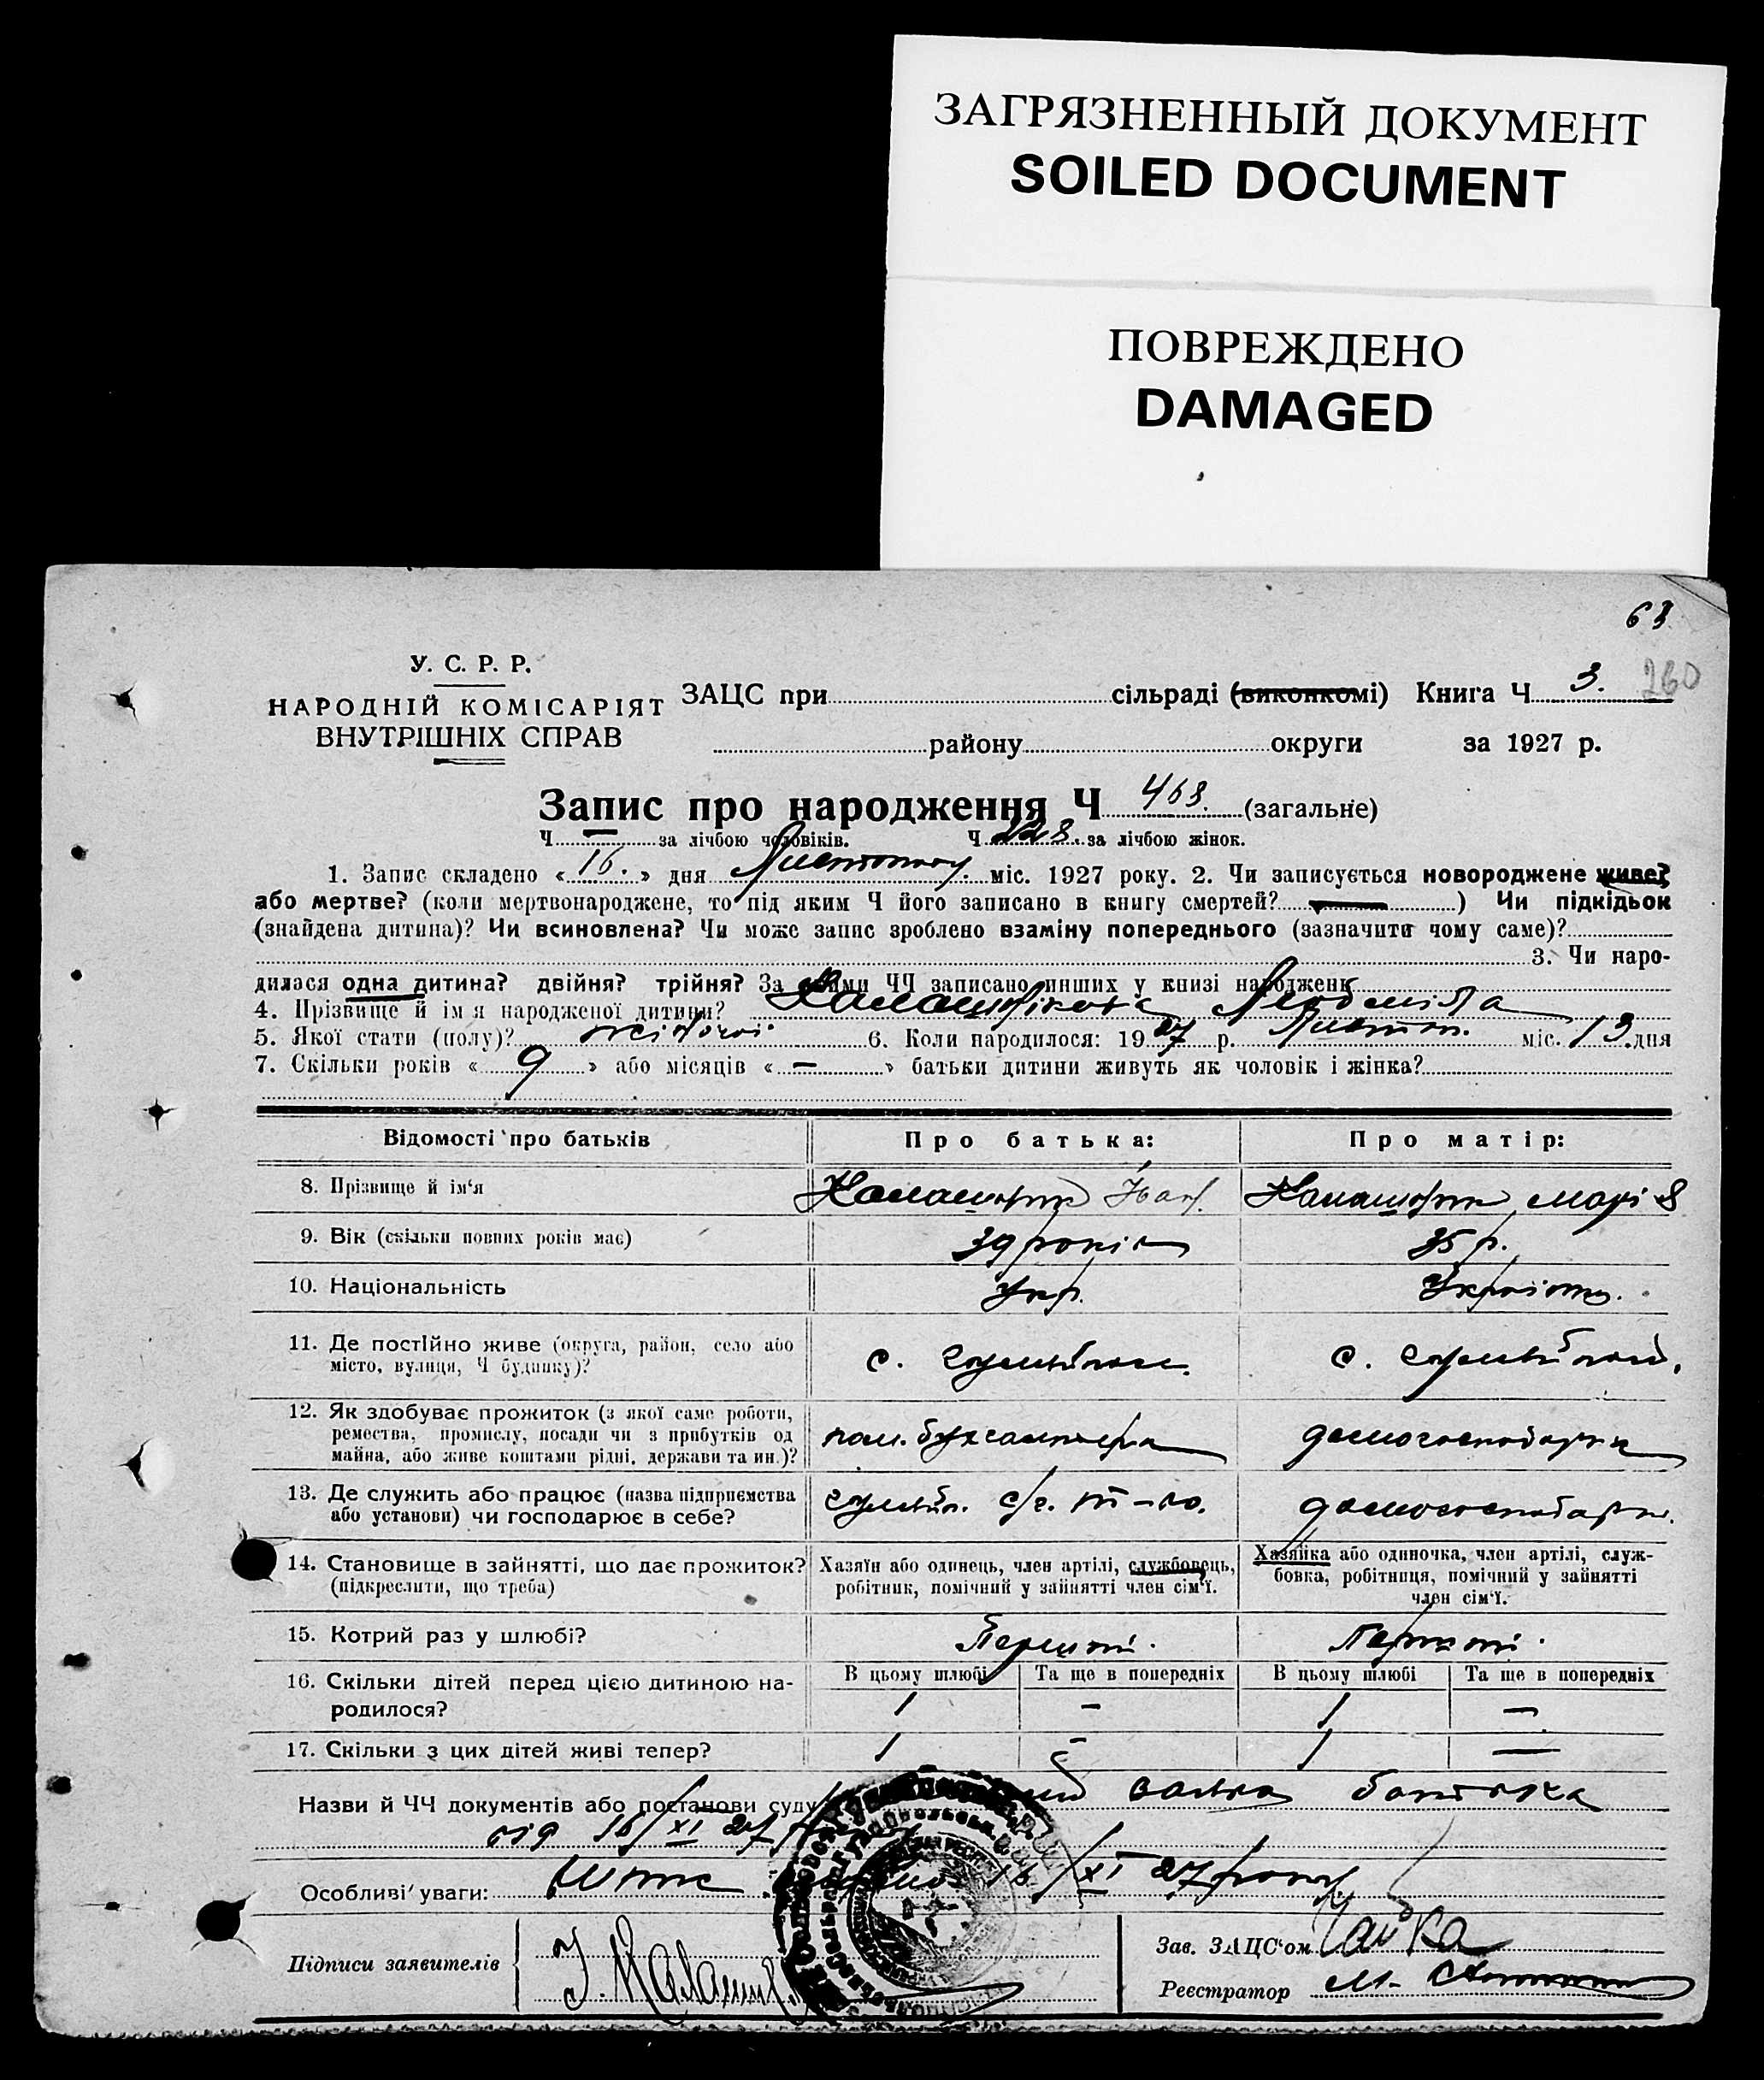 ЗАГРЯЗНЕННЫЙ ДОКУМЕНТ
SOILED DOCUMENT
ПОВРЕЖДЕНО
DAMAGED
63
260
У. С. Р. Р.
НАРОДНІЙ КОМІСАРІЯТ
ВНУТРІШНІХ СПРАВ
ЗАЦС при сільраді (виконкомі) Книга Ч 3.
району округи за 1927 р.
Запис про народження Ч 468. (загальне)
Ч — за лічбою чоловіків. Ч 228. за лічбою жінок.
1. Запис складено « 16. » дня Листопаду. міс. 1927 року. 2. Чи записується новороджене живе?
або мертве? (коли мертвонароджене, то під яким Ч його записано в книгу смертей? — ) Чи підкідьок
(знайдена дитина)? Чи всиновлена? Чи може запис зроблено взаміну попереднього (зазначити чому саме)?
3. Чи наро-
дилася одна дитина? двійня? трійня? За якими ЧЧ записано инших у книзі народжень
4. Прізвище й ім'я народженої дитини?
5. Якої стати (полу)? жіночої. 6. Коли народилося: 19 27 р. Листоп. міс. 13 дня
7. Скільки років « 9 » або місяців « — » батьки дитини живуть як чоловік і жінка?
Відомості про батьків
Про батька:
Про матір:
8. Прізвище й ім'я
Іван.
Марія
9. Вік (скільки повних років має)
39 років
35 р.
10. Національність
Укр.
11. Де постійно живе (округа, район, село або
місто, вулиця, Ч будинку)?
с.
с.
12. Як здобуває прожиток (з якої саме роботи,
ремества, промислу, посади чи з прибутків од
майна, або живе коштами рідні, держави та ин.)?
пом. бухгалтера
домогосподарка
13. Де служить або працює (назва підприємства
або установи) чи господарює в себе?
с/г. т-во.
домогосподарк.
14. Становище в зайнятті, що дає прожиток?
(підкреслити, що треба)
Хазяїн або одинець, член артілі, службовець,
робітник, помічний у зайнятті член сім'ї.
Хазяйка або одиночка, член артілі, служ-
бовка, робітниця, помічний у зайнятті
член сім'ї.
15. Котрий раз у шлюбі?
Перший.
Перший.
16. Скільки дітей перед цією дитиною на-
родилося?
В цьому шлюбі
Та ще в попередніх
В цьому шлюбі
Та ще в попередніх
1 — 1 —
17. Скільки з цих дітей живі тепер?
1 — 1 —
Назви й ЧЧ документів або постанови суду заява батька
від 16/XI 27
Особливі уваги: 16/XI 27 року.
Підписи заявителів
Зав. ЗАЦС'ом Чайка
Реєстратор М.